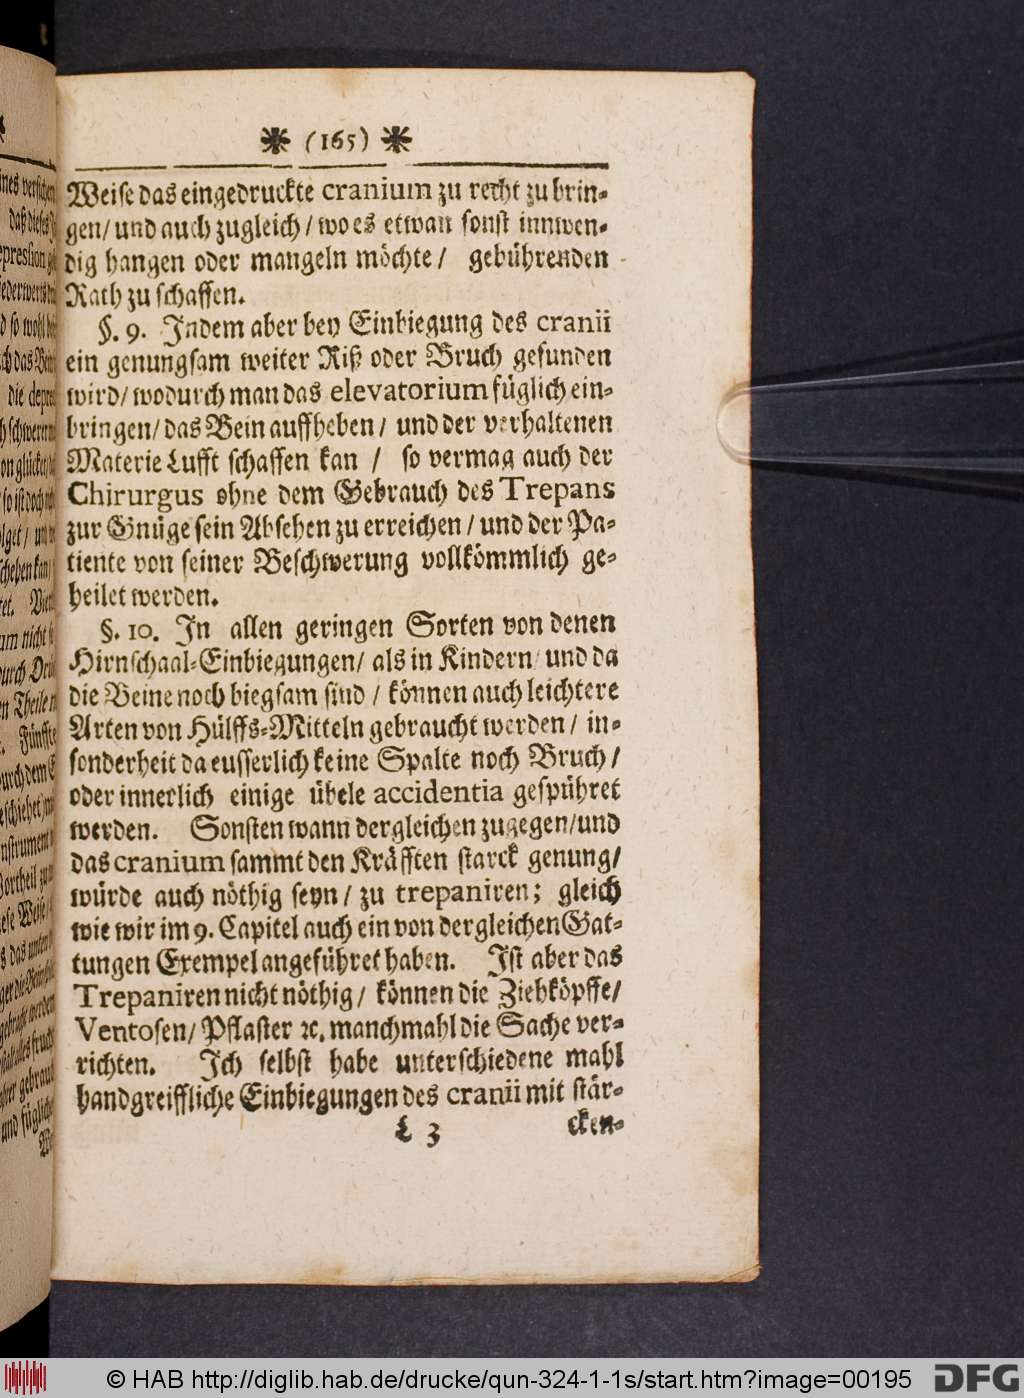 (165)
Weise das eingedruckte cranium zu recht zu brin-
gen/ und auch zugleich/ wo es etwan sonst innwen-
dig hangen oder mangeln möchte/ gebührenden
Rath zu schaffen.
§. 9. Indem aber bey Einbiegung des cranii
ein genungsam weiter Riß oder Bruch gefunden
wird/ wodurch man das elevatorium füglich ein-
bringen/ das Bein auffheben/ und der verhaltenen
Materie Lufft schaffen kan / so vermag auch der
Chirurgus ohne dem Gebrauch des Trepans
zur Gnüge sein Absehen zu erreichen/ und der Pa-
tiente von seiner Beschwerung vollkömmlich ge-
heilet werden.
§. 10. In allen geringen Sorten von denen
Hirnschaal-Einbiegungen/ als in Kindern/ und da
die Beine noch biegsam sind / können auch leichtere
Arten von Hülffs-Mitteln gebraucht werden/ in-
sonderheit da eusserlich keine Spalte noch Bruch/
oder innerlich einige übele accidentia gespühret
werden. Sonsten wann dergleichen zugegen/und
das cranium sammt den Kräfften starck genung/
würde auch nöthig seyn/ zu trepaniren; gleich
wie wir im 9. Capitel auch ein von dergleichen Gat-
tungen Exempel angeführet haben. Ist aber das
Trepaniren nicht nöthig/ können die Ziehköpffe/
Ventosen/ Pflaster ꝛc. manchmahl die Sache ver-
richten. Ich selbst habe unterschiedene mahl
handgreiffliche Einbiegungen des cranii mit stär-
L 3 cken-
© HAB http://diglib.hab.de/drucke/qun-324-1-1s/start.htm?image=00195
DFG